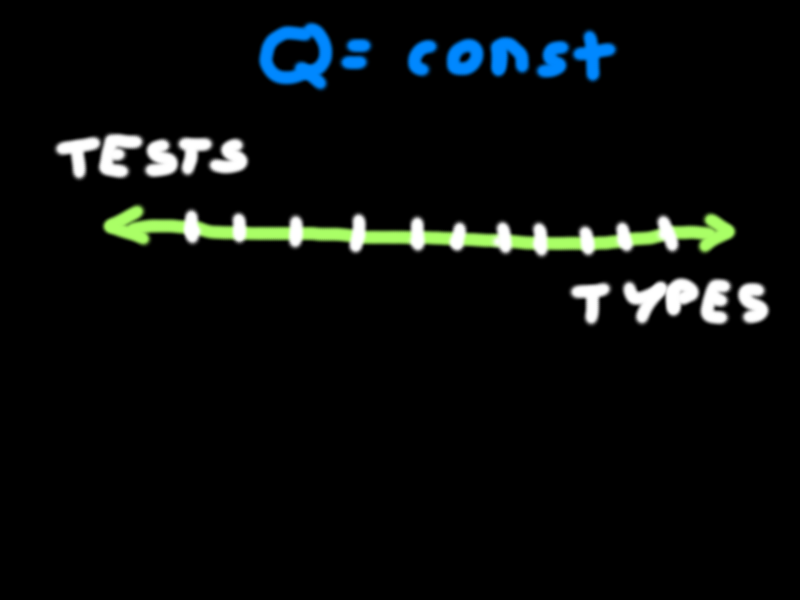 Q = const
TESTS
TYPES